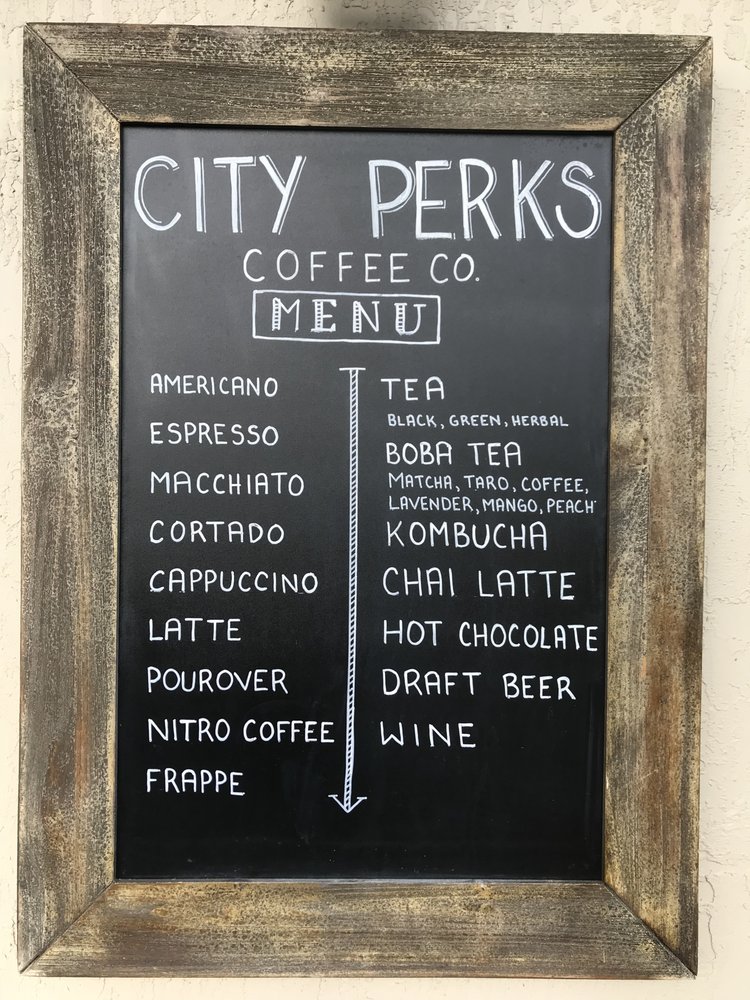 CITY PERKS
COFFEE CO.
MENU
AMERICANO
ESPRESSO
MACCHIATO
CORTADO
CAPPUCCINO
LATTE
POUROVER
NITRO COFFEE
FRAPPE
TEA
BLACK, GREEN, HERBAL
BOBA TEA
MATCHA, TARO, COFFEE,
LAVENDER, MANGO, PEACH
KOMBUCHA
CHAI LATTE
HOT CHOCOLATE
DRAFT BEER
WINE